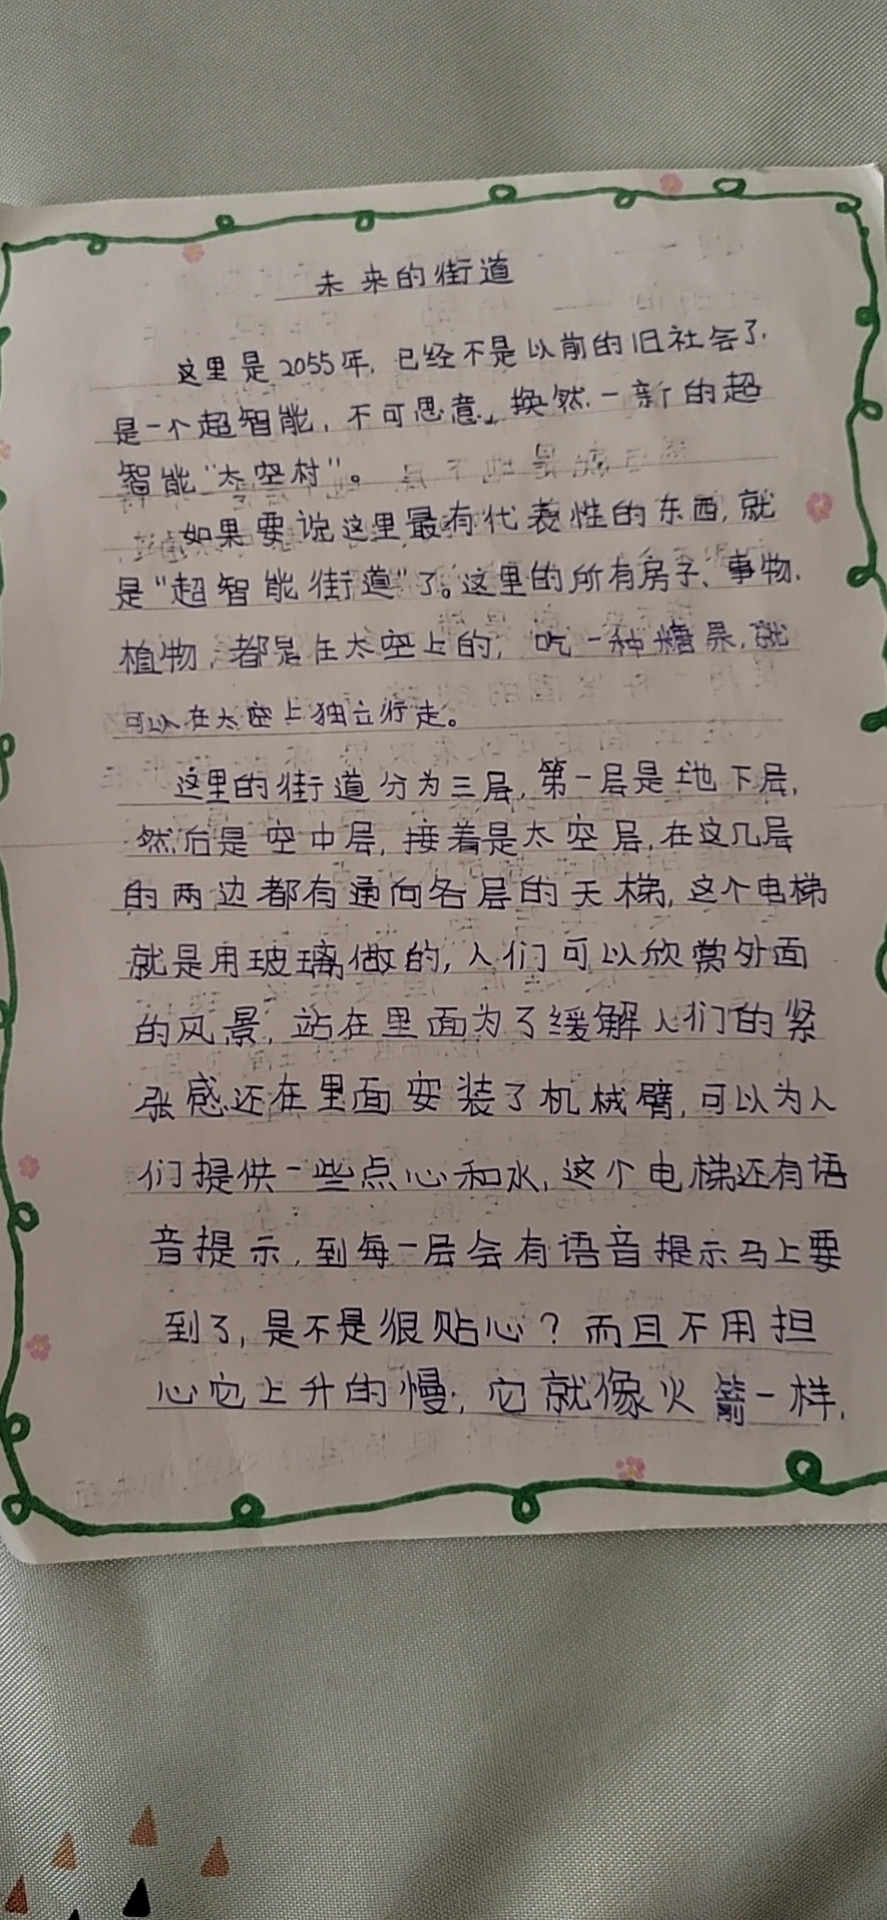 未来的街道
这里是2055年，已经不是以前的旧社会了，
是一个超智能，不可思意，换然一新的超
智能“太空村”。
如果要说这里最有代表性的东西，就
是“超智能街道”了。这里的所有房子、事物，
植物，都是在太空上的，吃一种糖果，就
可以在太空上独立行走。
这里的街道分为三层，第一层是地下层，
然后是空中层，接着是太空层，在这几层
的两边都有通向各层的天梯，这个电梯
就是用玻璃做的，人们可以欣赏外面
的风景，站在里面为了缓解人们的紧
张感还在里面安装了机械臂，可以为人
们提供一些点心和水，这个电梯还有语
音提示，到每一层会有语音提示马上要
到了，是不是很贴心？而且不用担
心它上升的慢，它就像火箭一样，